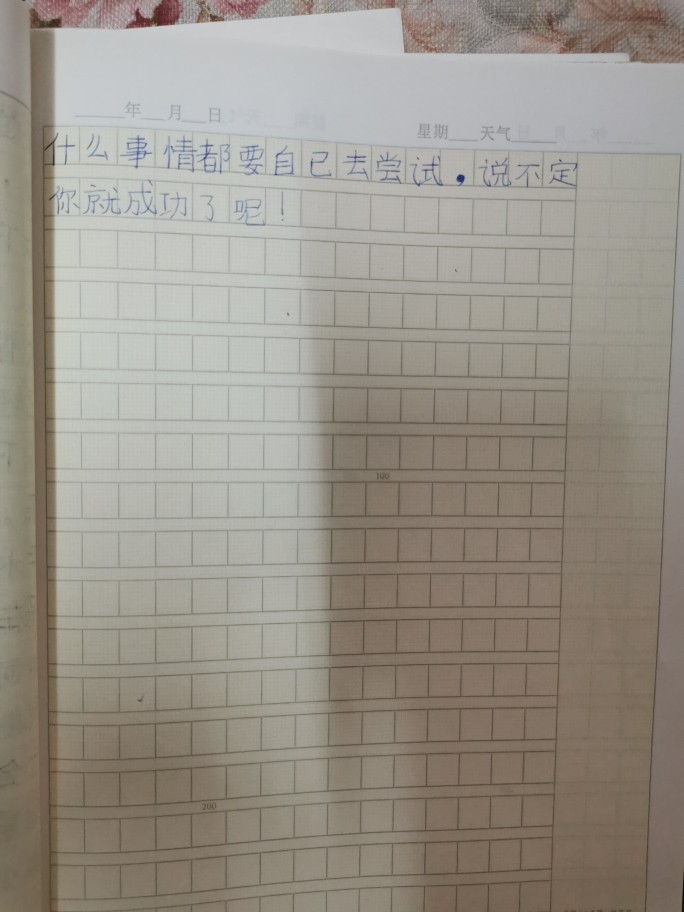 年 月 日
星期 天气
什么事情都要自己去尝试，说不定
你就成功了呢！
100
200